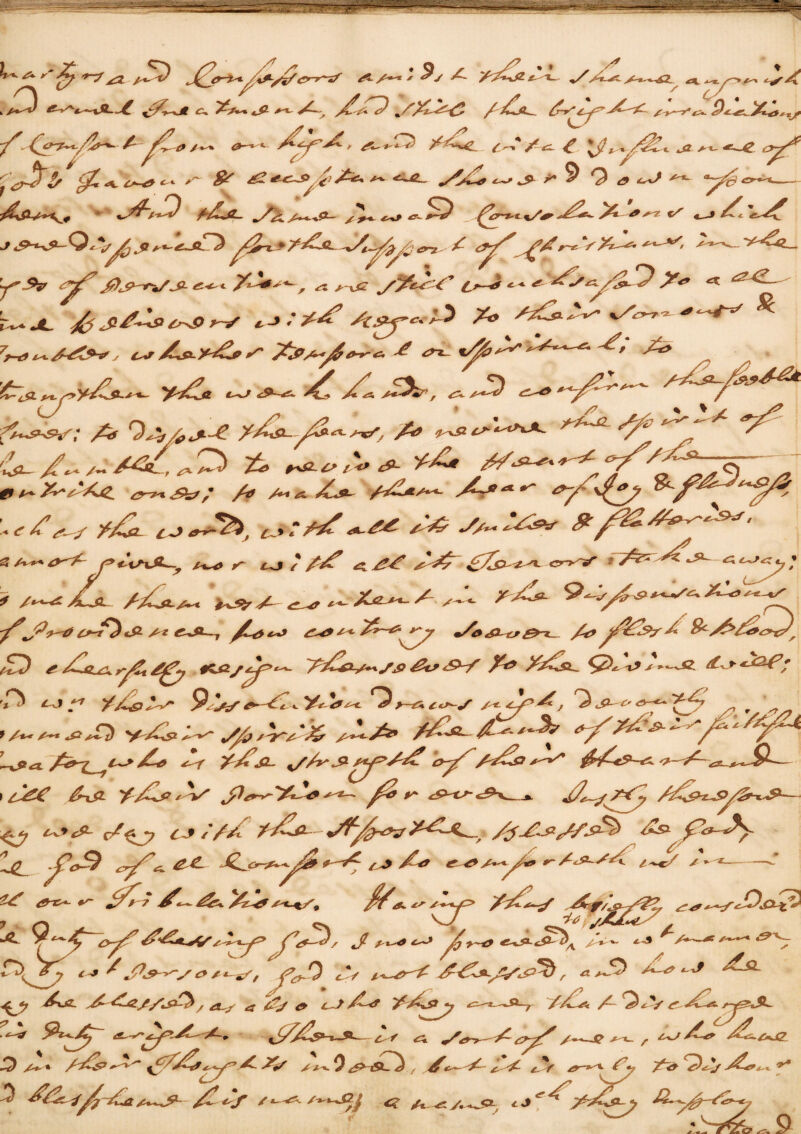 martyrs and Confessors amidst their shame, anguish
and cruel Treatment, had still the bright irradiations
of Comfort from on high, and the vital Influence of
God's Favour & acceptance shower'd down upon
them. And the same inward Consolations which
were dispenced for the Support of Christians, in the
ages of Persecution, are still vouchsafed to all
true Believers with regard to their sorrows &
Troubles, whether temporal or spiritual; to
strengthen the weak hands, and confirm the feeble
knees: to dispel the fears, to revive the spirit of
the humble, and to revive the Heart of the
contrite ones; to make them hear of Joy & gladness,
such as the world, with all its smiles & flatteries,
cannot give, nor with all its Terrors take away;
to make them rest content in the dispensations
of Providence, how contrary soever to flesh & Blood,
and chearfully resign themselves to the Divine will;
and wn. their dissolution draws nigh, devoutly
commend their spirits into the hands of their faithful
Creator, who is the strength of their Heart and
will be their Portion for ever. Justly therefore
may we say with the Apostle, Blessed be God,
the God of all Comfort, who comforteth us in
all our Tribulations. Having thus briefly consider'd
the Duty of blessing God, I now proceed, to shew in wt manner,
and by wt Persons, God is not blessed, and how he
may be blessed, as also who they are, that discharge
this Duty aright. There is a sort of men, who have
God in their Thoughts indeed, but it is only to dishonr
and blaspheme his name; a name, wch they employ
instead